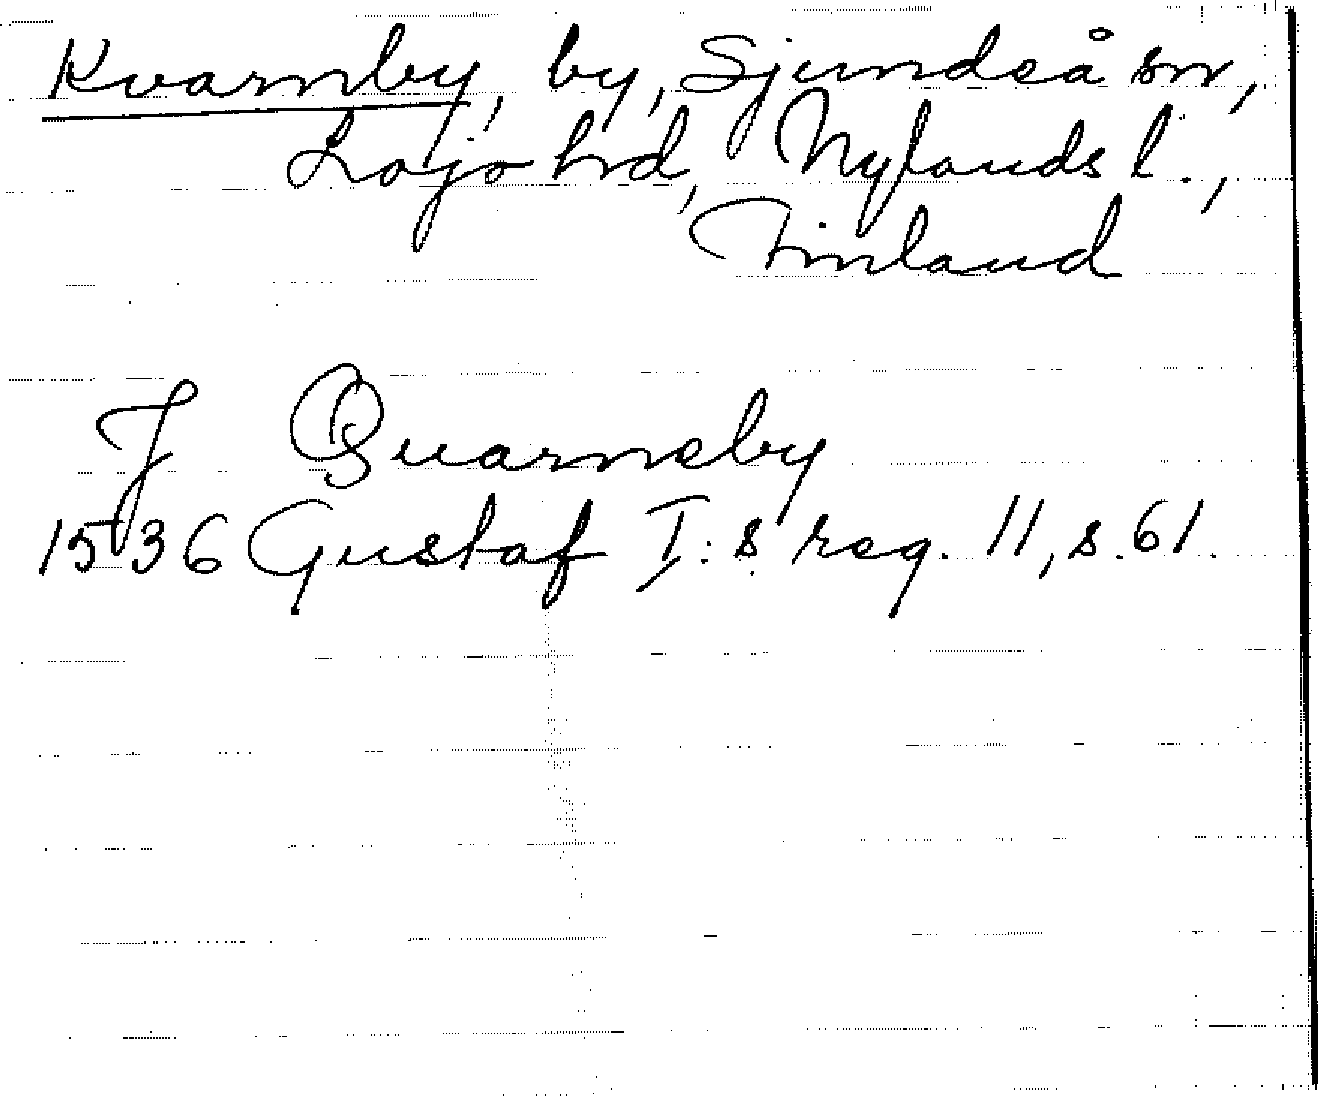 Kvarnby, by, Sjundeå sn,
Lojo hd, Nylands l.,
Finland
J Quarneby
1536 Gustaf I:s reg. 11, s. 61.